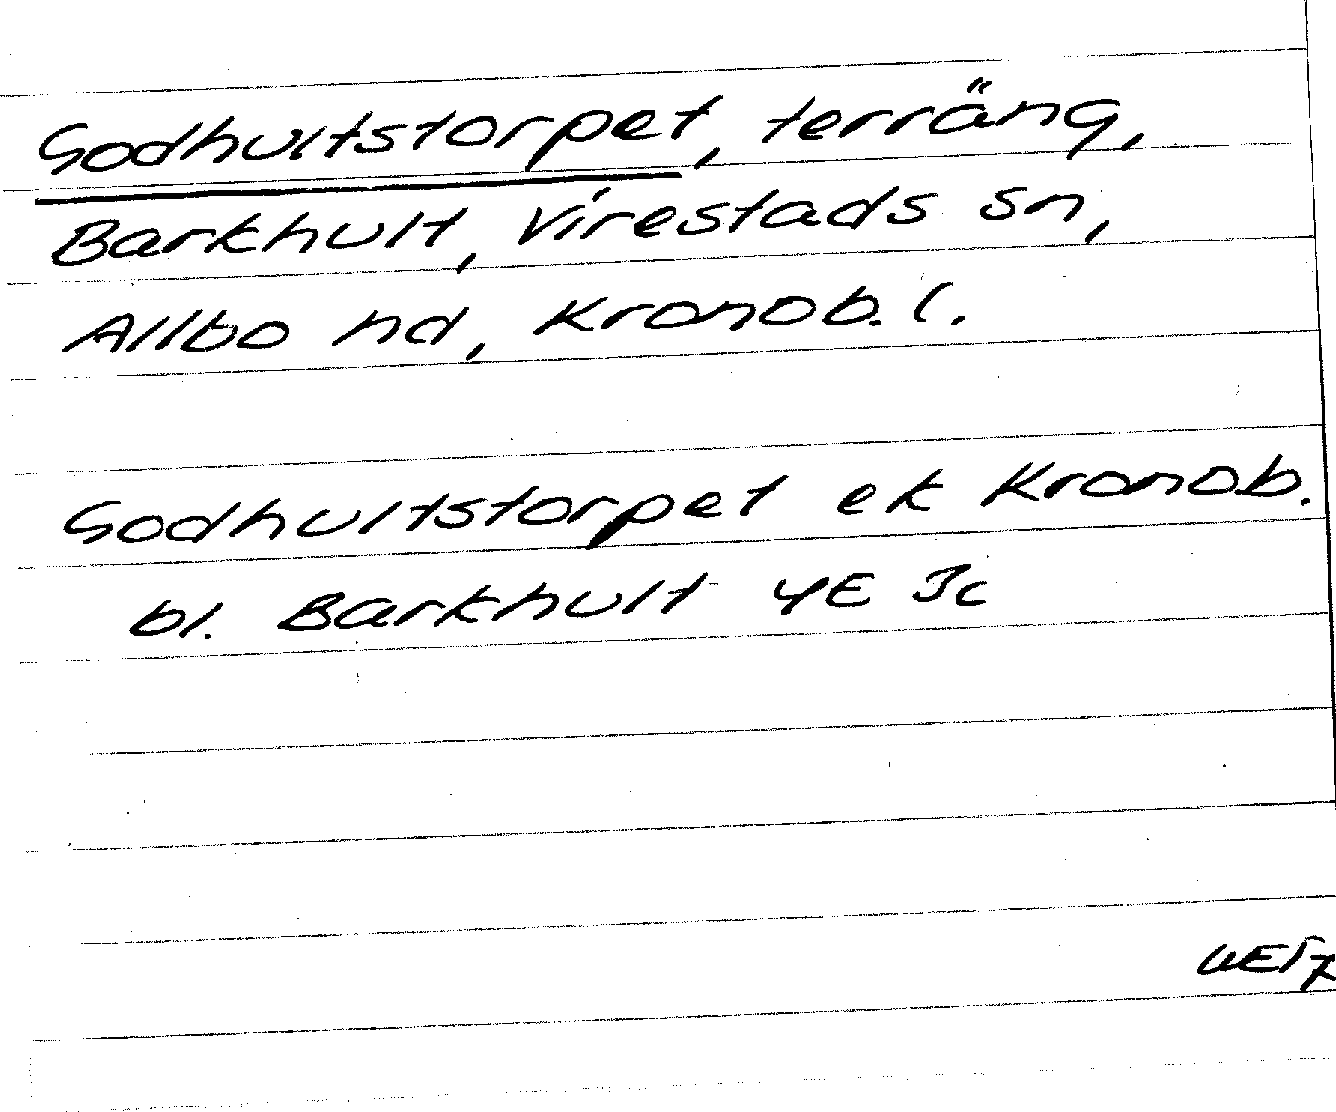 Godhultstorpet, terräng,
Barkhult, Virestads sn,
Allbo hd, Kronob. l.
Godhultstorpet ek Kronob.
bl. Barkhult 4E 3c